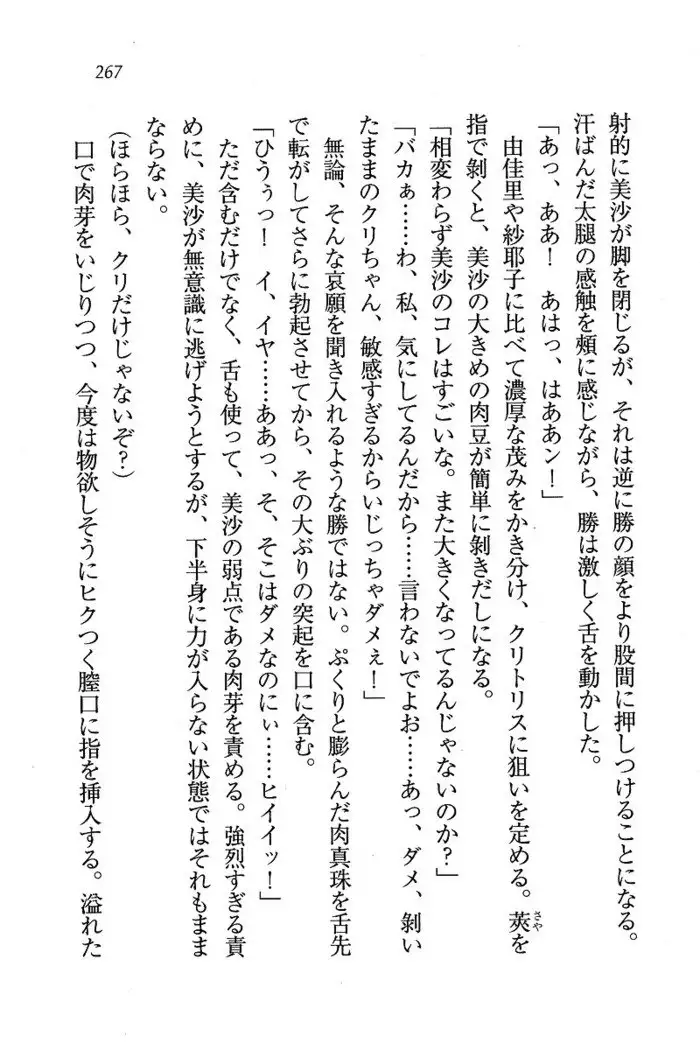 267
射的に美沙が脚を閉じるが、それは逆に勝の顔をより股間に押しつけることになる。
汗ばんだ太腿の感触を頰に感じながら、勝は激しく舌を動かした。
「あっ、ああ！　あはっ、はああン！」
由佳里や紗耶子に比べて濃厚な茂みをかき分け、クリトリスに狙いを定める。莢（さや）を
指で剝くと、美沙の大きめの肉豆が簡単に剝きだしになる。
「相変わらず美沙のコレはすごいな。また大きくなってるんじゃないのか？」
「バカぁ……わ、私、気にしてるんだから……言わないでよお……あっ、ダメ、剝い
たままのクリちゃん、敏感すぎるからいじっちゃダメぇ！」
無論、そんな哀願を聞き入れるような勝ではない。ぷくりと膨らんだ肉真珠を舌先
で転がしてさらに勃起させてから、その大ぶりの突起を口に含む。
「ひうぅっ！　イ、イヤ……ああっ、そ、そこはダメなのにぃ……ヒイイッ！」
ただ含むだけでなく、舌も使って、美沙の弱点である肉芽を責める。強烈すぎる責
めに、美沙が無意識に逃げようとするが、下半身に力が入らない状態ではそれもまま
ならない。
（ほらほら、クリだけじゃないぞ？）
口で肉芽をいじりつつ、今度は物欲しそうにヒクつく膣口に指を挿入する。溢れた